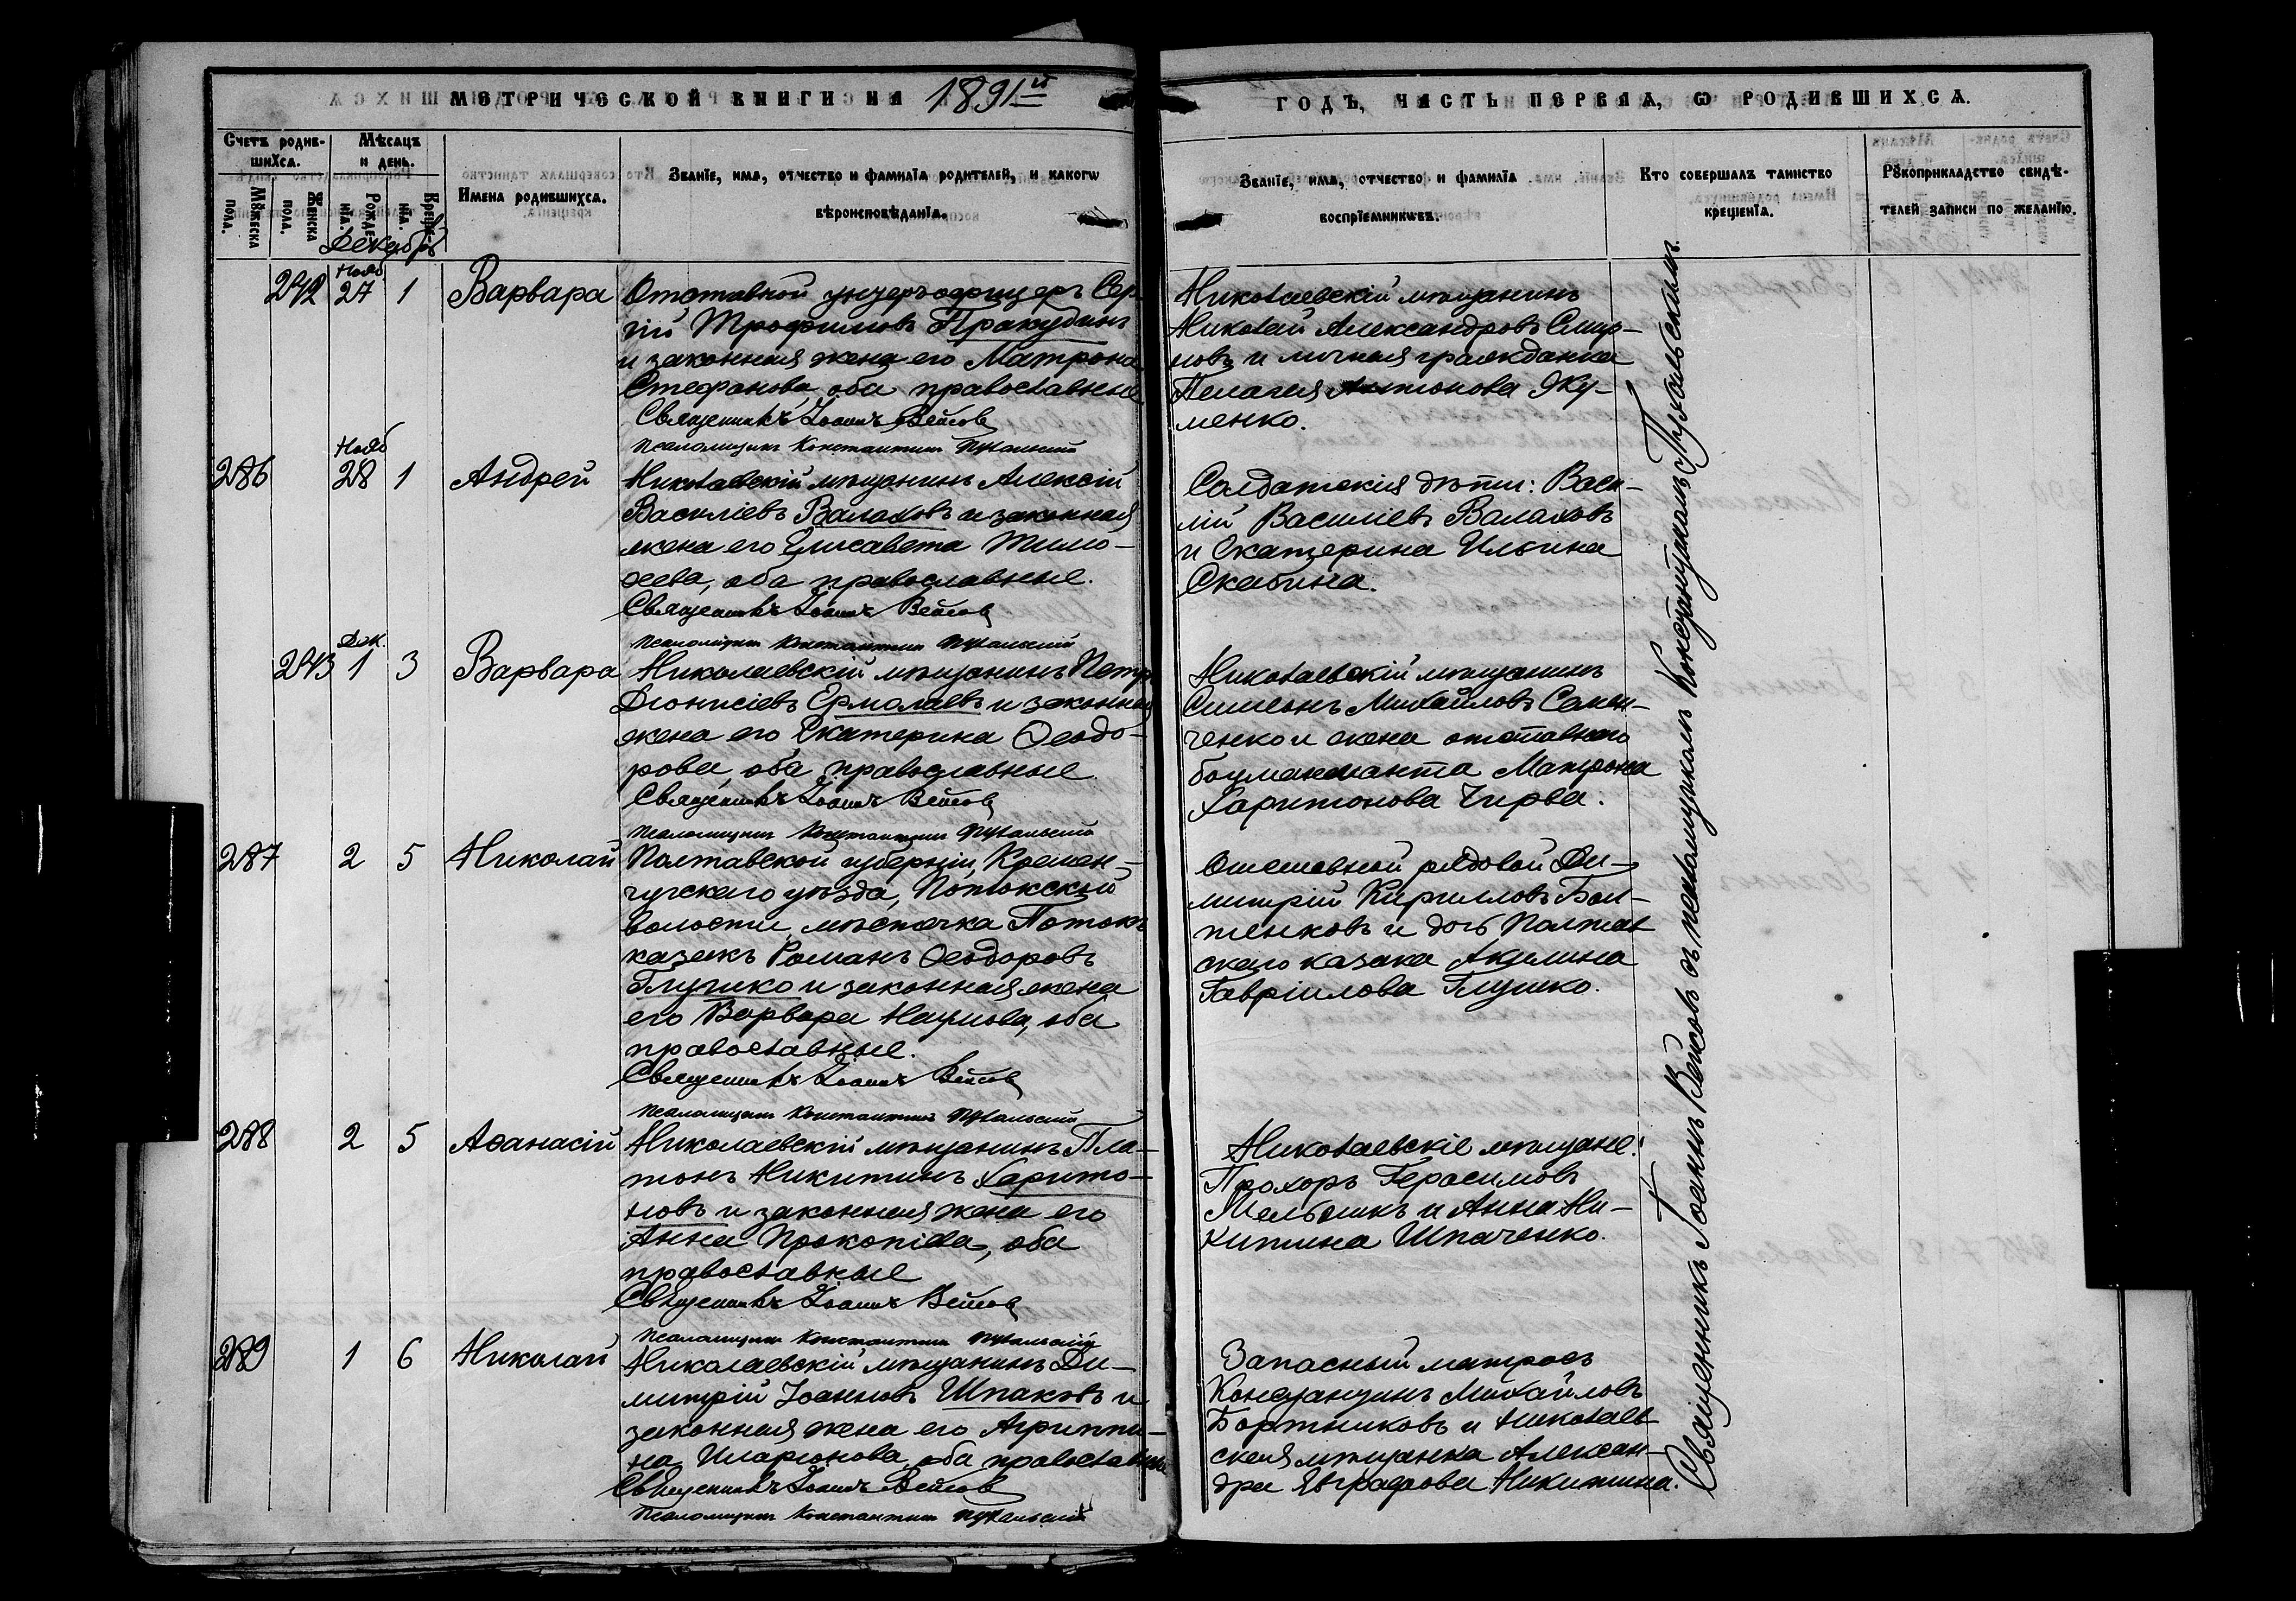 МЕТРИЧЕСКОЙ КНИГИ НА 1891й ГОДЪ, ЧАСТЬ ПЕРВАЯ, Ѡ РОДИВШИХСЯ.
Счетъ родив-
шихся.
Мѣсяцъ
и день.
Мꙋжеска
пола.
Женска
пола.
Рожде-
нїя.
Креще-
нїя.
Имена родившихся.
Званїе, имя, отчество и фамилїя родителей, и какогѡ
вѣроисповѣданїя.
Званїе, имя, отчество и фамилїя
воспрїемникѡвъ.
Кто совершалъ таинство
крещенїя.
Рꙋкоприкладство свидѣ-
телей записи по желанїю.
Декабрь
242 Нояб 27 1 Варвара
Отставной унтеръ-офицеръ Сер-
гій Трофимовъ Пракудинъ
и законная жена его Матрона
Стефанова, оба православные
Священникъ Іоаннъ Вейсов
Псаломщикъ Константинъ
Николаевскій мѣщанинъ
Николай Александровъ Смир-
новъ и личная гражданка
Пелагея Антонова Яку-
менко.
286 Нояб 28 1 Андрей
Николаевскій мѣщанинъ Алексій
Василіевъ Валаховъ и законная
жена его Елисавета Тимо-
ѳеева, оба православные.
Священникъ Іоаннъ Вейсов
Псаломщикъ Константинъ
Солдатскія дѣти: Васи-
лій Василіевъ Валаховъ
и Екатерина Ильина
Скабина.
243 Дек. 1 3 Варвара
Николаевскій мѣщанинъ Петръ
Діонисіевъ Ермолаевъ и законная
жена его Екатерина Ѳеодо-
рова, оба православные
Священникъ Іоаннъ Вейсов
Псаломщикъ Константинъ
Николаевскій мѣщанинъ
Симеонъ Михайловъ Семен-
ченко и жена отставного
боцманмата Матрона
Харитонова Чирва.
287 2 5 Николай
Полтавской губерніи, Кремен-
чугскаго уѣзда, Потокской
волости, мѣстечка Потокъ
казакъ Романъ Ѳеодоровъ
Глушко и законная жена
его Варвара Наумова, оба
православные.
Священникъ Іоаннъ Вейсов
Псаломщикъ Константинъ
Отставной рядовой Ди-
митрій Кирилловъ
и дочь Полтав
скаго казака Акилина
Гавріилова Глушко.
288 2 5 Аѳанасій
Николаевскій мѣщанинъ Пла-
тонъ Никитинъ Харито-
новъ и законная жена его
Анна Прокопіева, оба
православные
Священникъ Іоаннъ Вейсов
Псаломщикъ Константинъ
Николаевскіе мѣщане:
Прохоръ Герасимовъ
Мельникъ и Анна Ни-
китина Шпаченко.
289 1 6 Николай
Николаевскій мѣщанинъ Ди-
митрій Іоанновъ Шпаковъ и
законная жена его Агриппи-
на Иларіонова, оба православные
Священникъ Іоаннъ Вейсов
Псаломщикъ Константинъ
Запасный матросъ
Константинъ Михайловъ
Бортниковъ и Николаев
ская мѣщанка Алексан-
дра Евграфова Никитина.
Священникъ Іоаннъ Вейсовъ съ псаломщикомъ Константиномъ